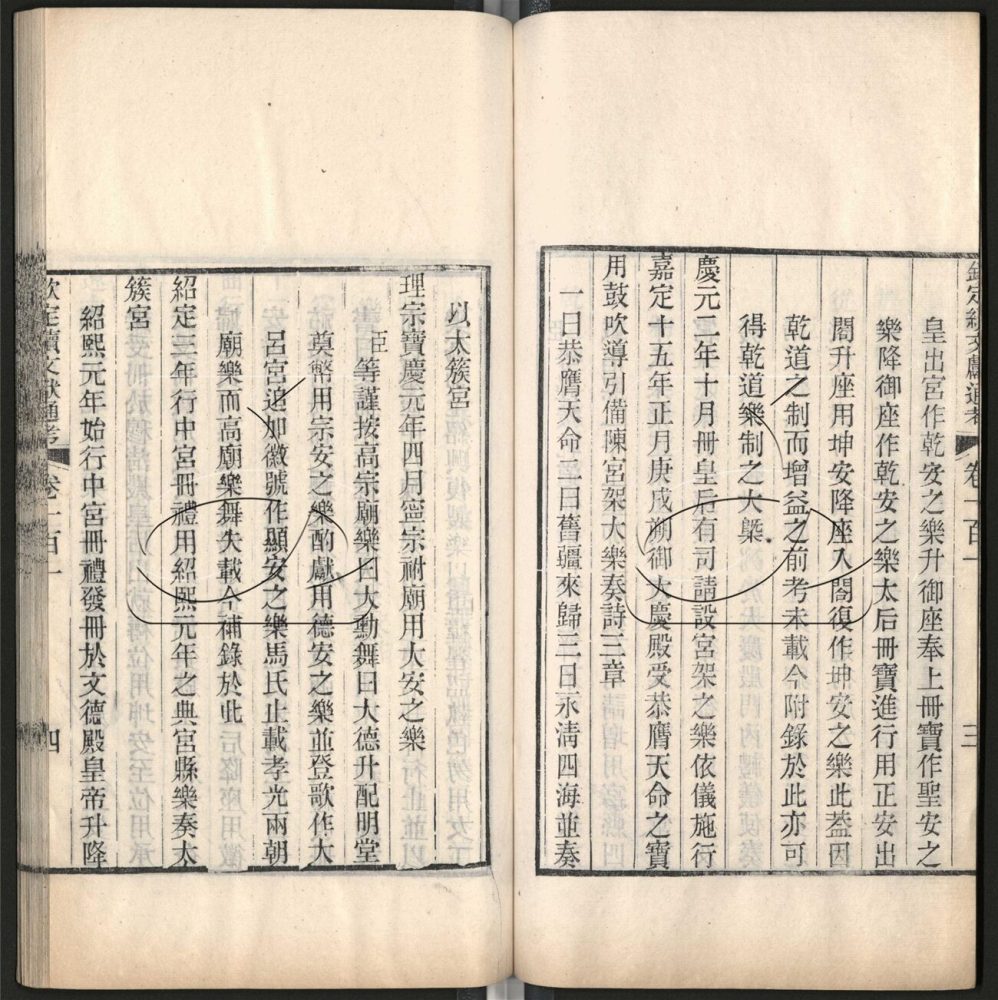 欽定續文獻通考 卷一百一 三
皇出宮作乾安之樂升御座奉上冊寶作聖安之
樂降御座作乾安之樂太后冊寶進行用正安出
閤升座用坤安降座入閤復作坤安之樂此葢因
乾道之制而增益之前考未載今附錄於此亦可
得乾道樂制之大槩
慶元二年十月冊皇后有司請設宮架之樂依儀施行
嘉定十五年正月庚戌朔御大慶殿受恭膺天命之寶
用鼓吹導引備陳宮架大樂奏詩三章
一曰恭膺天命二曰舊疆來歸三曰永淸四海並奏
以太簇宮
理宗寶慶元年四月寧宗祔廟用大安之樂
臣等謹按高宗廟樂曰大勳舞曰大德升配明堂
奠幣用宗安之樂酌獻用德安之樂並登歌作大
呂宮追加徽號作顯安之樂馬氏止載孝光兩朝
廟樂而高廟樂舞失載今補錄於此
紹定三年行中宮冊禮用紹熙元年之典宮縣樂奏太
簇宮
紹熙元年始行中宮冊禮發冊於文德殿皇帝升降
欽定續文獻通考 卷一百一 四